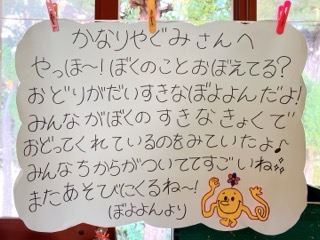 かなりやぐみさんへ
やっほ〜!ぼくのことおぼえてる?
おどりがだいすきなぽよよんだよ!
みんながぼくのすきなきょくで
おどってくれているのをみていたよ♪
みんなちからがついててすごいね
またあそびにくるね〜!
(ぽよよんより)